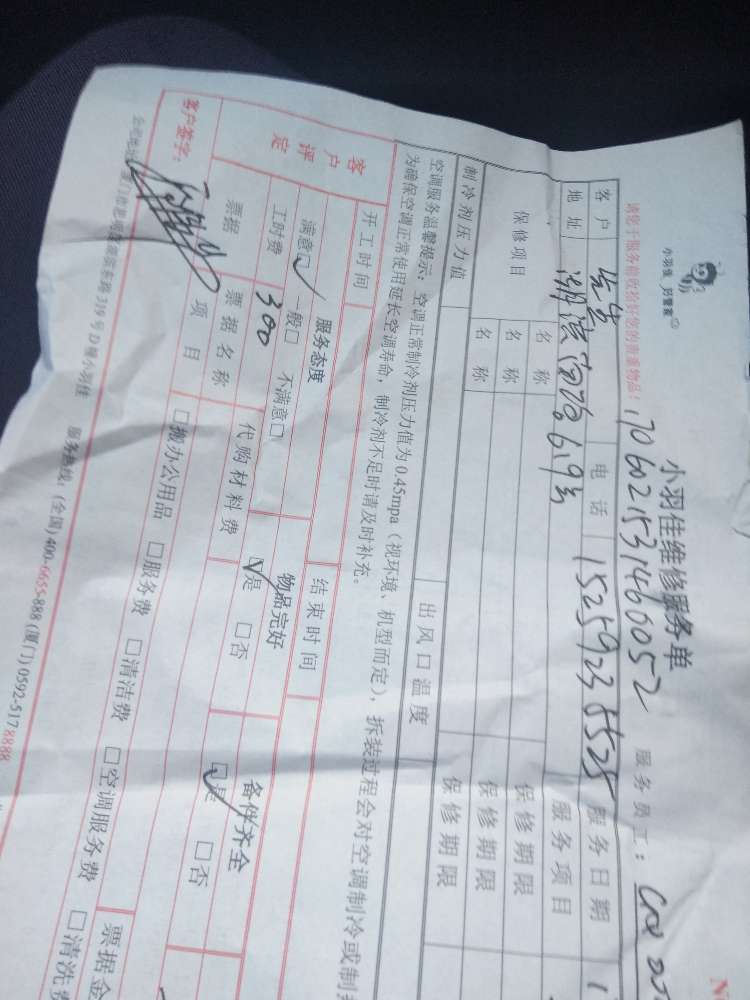 小羽佳 好管家
小羽佳维修服务单
请您于服务前收拾好您的贵重物品!
1706021531460052 服务员工:
客户 电话 15259238525 服务日期
地址 湖滨南路69号 服务项目
保修项目 名称 保修期限
名称 保修期限
名称 保修期限
制冷剂压力值 出风口温度
空调服务温馨提示:空调正常制冷剂压力值为0.45mpa(视环境、机型而定),拆装过程会对空调制冷或制
为确保空调正常使用延长空调寿命,制冷剂不足时请及时补充。
开工时间 结束时间
客户评定 服务态度 物品完好 备件齐全
满意☑ 一般□ 不满意□ ☑是 □否 ☑是 □否
工时费 300 代购材料费
票据 票据名称 票据金
项目 □搬办公用品 □服务费 □清洁费 □空调服务费 □清洗费
客户签字:
319号D幢小羽佳 服务热线:(全国)400-6655-888(厦门)0592-5178888